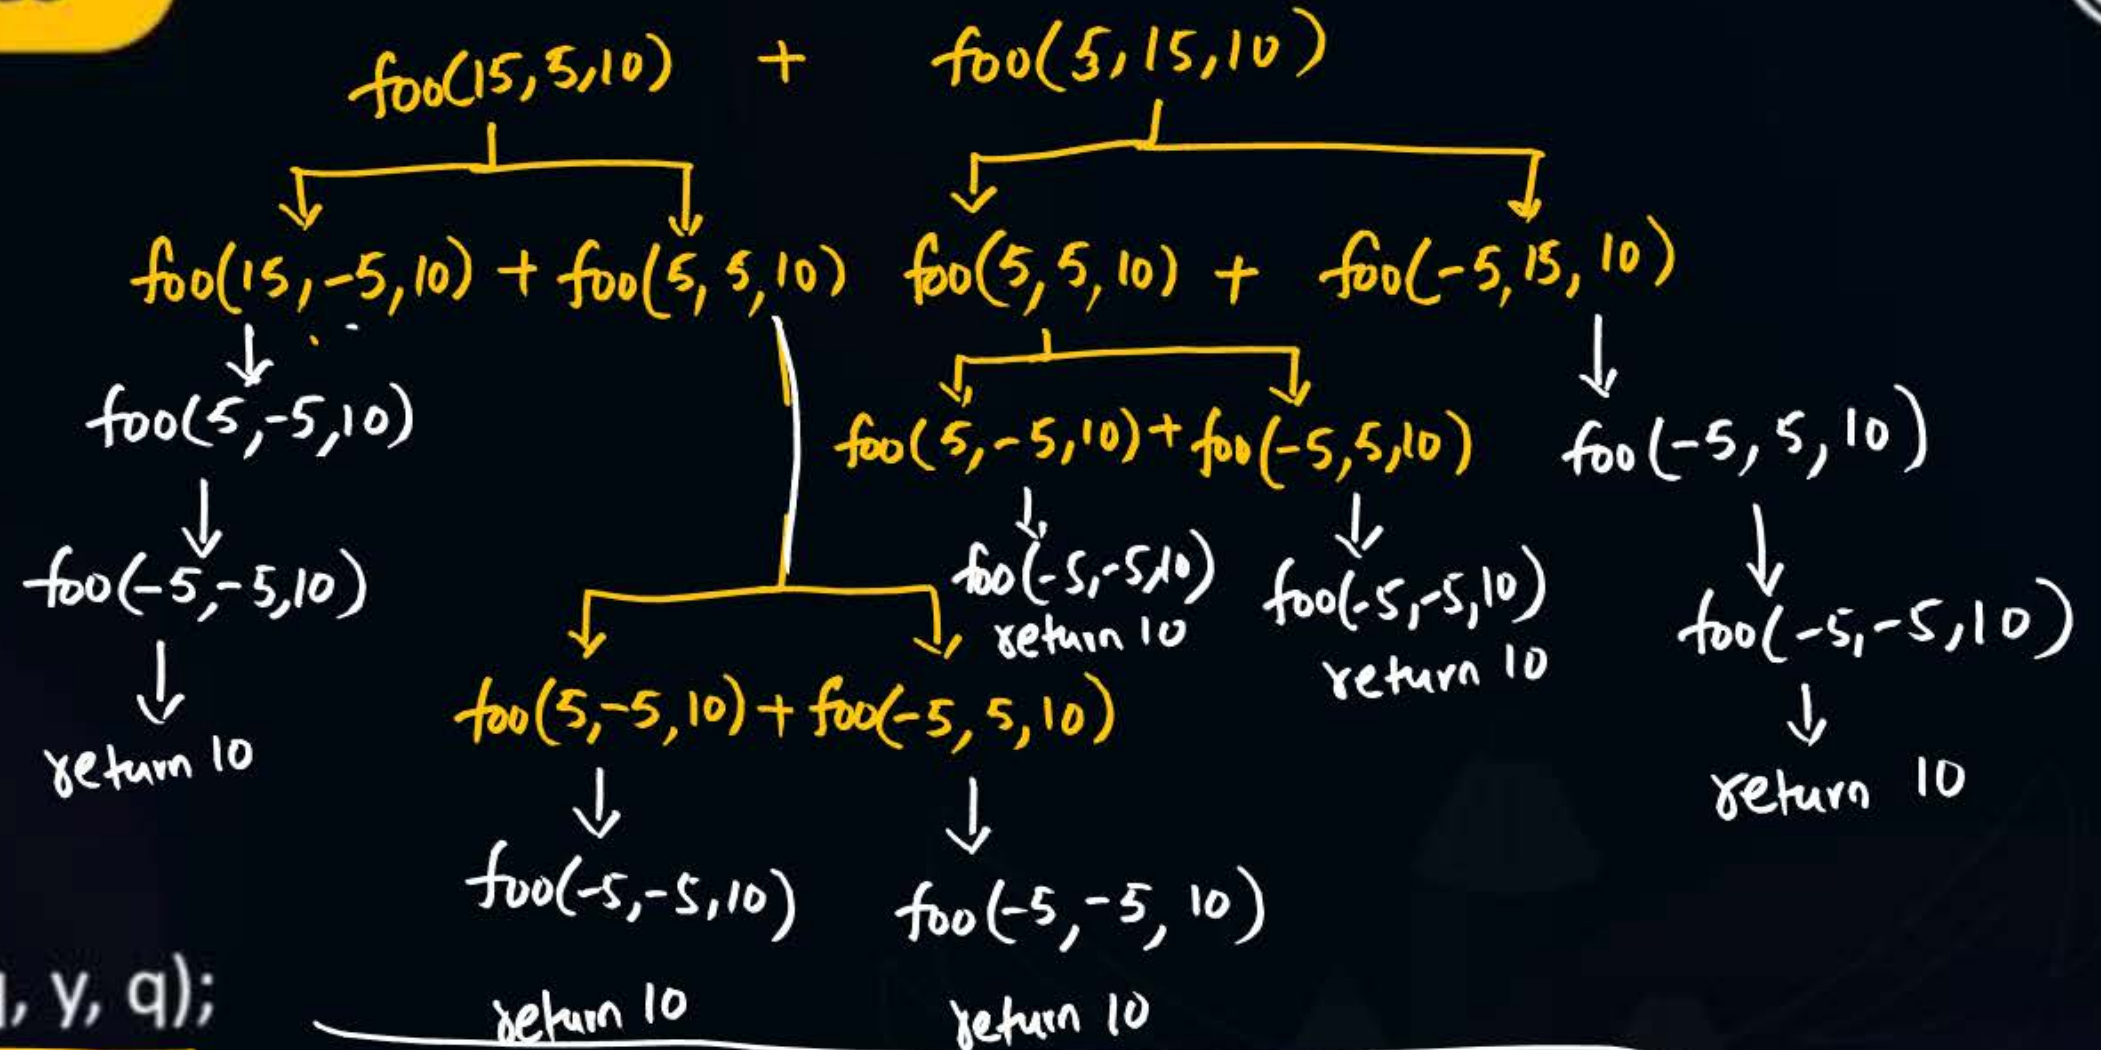 foo(15,5,10) + foo(5,15,10)
foo(15,-5,10) + foo(5,5,10) foo(5,5,10) + foo(-5,15,10)
foo(5,-5,10) foo(5,-5,10)+foo(-5,5,10) foo(-5,5,10)
foo(-5,-5,10) foo(-5,-5,10) foo(-5,-5,10) foo(-5,-5,10)
return 10 return 10
foo(5,-5,10)+foo(-5,5,10)
return 10 return 10
foo(-5,-5,10) foo(-5,-5,10)
, y, q);
return 10 return 10